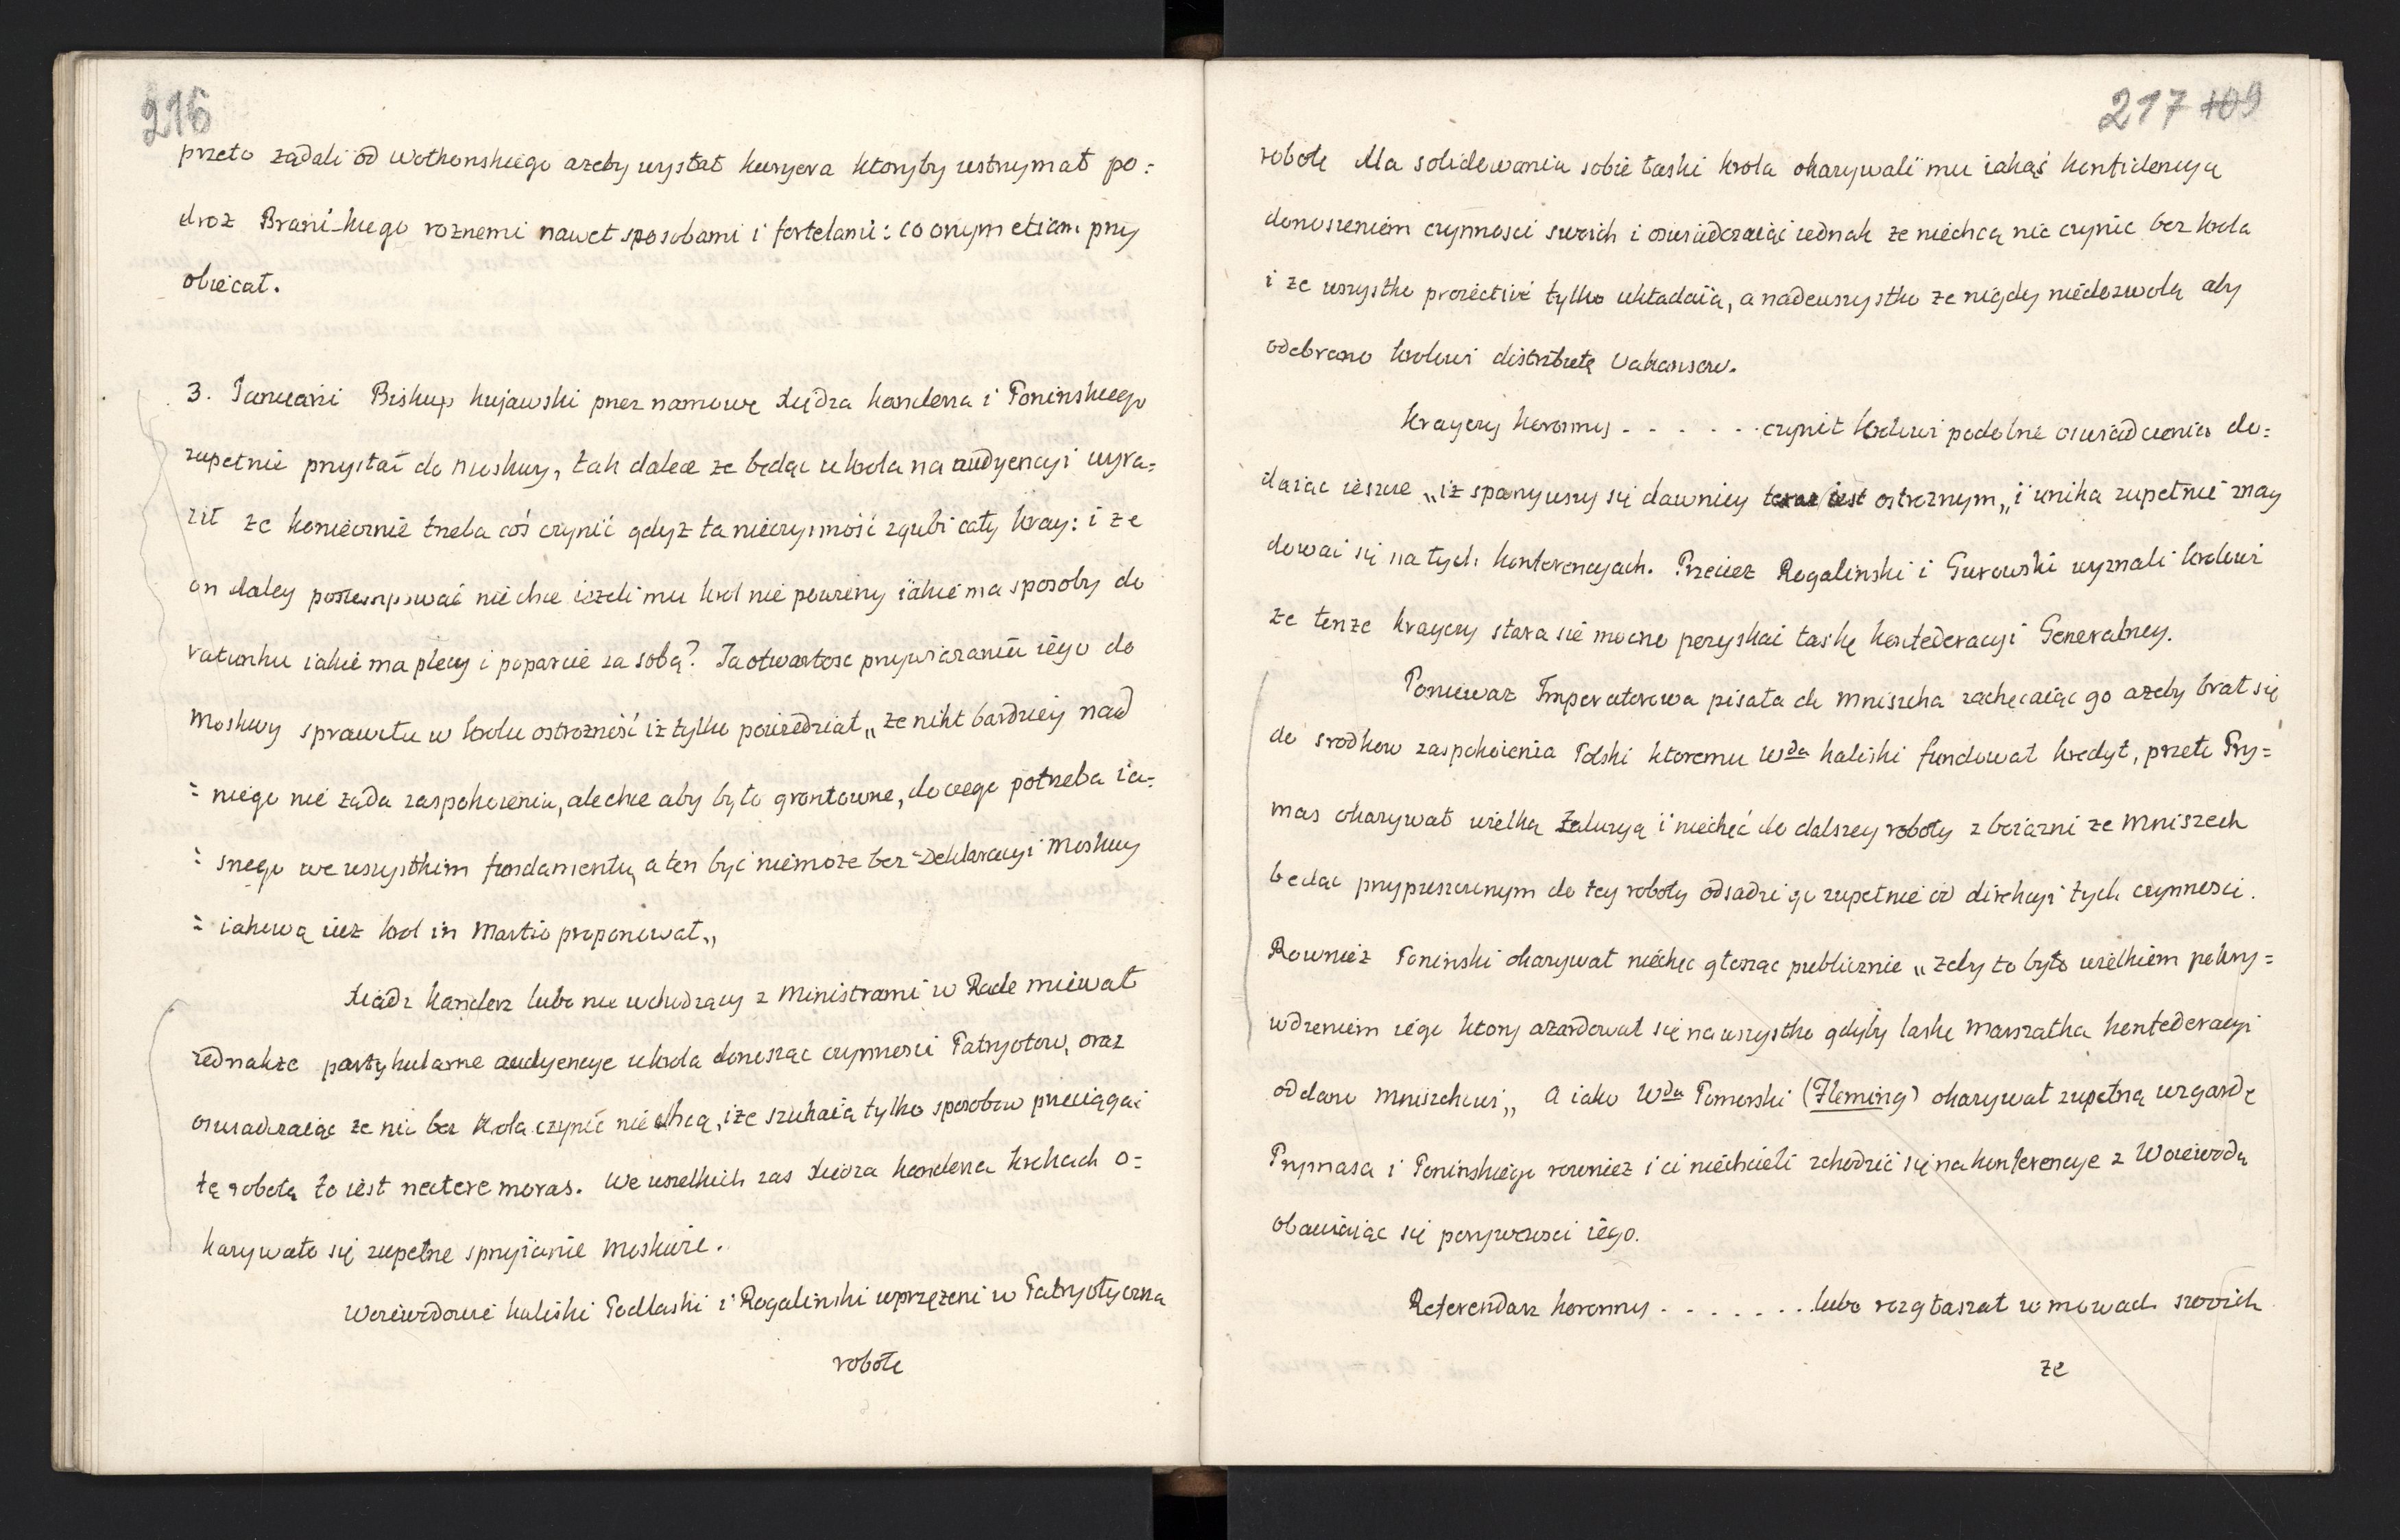 216
przeto żądali od Wołkonskiego azeby wysłał kuryera ktoryby wstrzymał po=
droz Branickiego roznemi nawet sposobami i fortelami: co onym etiam przy
obiecał.
3. Januarii Biskup kujawski przez namowę Xiędza kanclerza i Poninskiego
zupełnie przystał do Moskwy, tak dalece ze będąc u krola na audyencyi wyra=
ził ze koniecznie trzeba coś czynić gdyz ta nieczynność zgubi cały kray: i ze
on daley postempować nie chce iezeli mu krol nie powierzy iakie ma sposoby do
ratunku iakie ma plecy i poparcie za sobą? Ta otwartosc przywiązaniu iego do
Moskwy sprawiła w krolu ostrozność iz tylko powiedział „ ze nikt bardziey nad
= niego nie ząda zaspokoienia, ale chce aby było grontowne, do czego potrzeba ia=
= snego we wszystkim fundamentu, a ten być niemoże bez Deklaracyi Moskwy
= iakową iuz krol in Martio proponował„
Xiądz kanclerz lubo nie wchodzący z Ministrami w Radę miewał
iednakze partykularne audyencye u krola donosząc czynnosci Patryotow, oraz
oswiadczaiąc ze nic bez krola czynić nie chcą, i ze szukaią tylko sposobow przeciągać
tę robotę to iest nectere moras. We wszelkich zas Xiędza kanclerza krokach o=
kazywało się zupełne sprzyianie Moskwie.
Woiewodowie kaliski Podlaski i Rogalinski wprzężeni w Patryotyczna
robotę
217 109
robotę dla solidowania sobie łaski krola okazywali mu iakąś konfidencyą
donoszeniem czynnosci swoich i oswiadczaiąc iednak ze niechcą nic czynic bez krola
i ze wszystko proiective tylko układaią, a nadewszystko ze nigdy niedozwolą aby
odebrano krolowi distributę Vakansow.
Krayczy koronny - - - - - - czynił krolowi podobne oswiadczenia do=
daiąc ieszcze „iż sparzywszy się dawniey teraz iest ostroznym„ i unika zupełnie znay
dować się na tych konferencyach. Przeciez Rogalinski i Gurowski wyznali krolowi
ze tenze krayczy stara się mocno pozyskać łaskę konfederacyi Generalney.
Poniewaz Imperatorowa pisała do Mniszcha zachęcaiąc go azeby brał się
do srodkow zaspokoienia Polski ktoremu Wda kaliski fundował kredyt, przeto Pry=
mas okazywał wielką zaluzyą i niechęć do dalszey roboty z boiazni ze Mniszech
będąc przypuszczonym do tey roboty odsadzi go zupełnie od direkcyi tych czynnosci.
Rowniez Poninski okazywał niechęc głosząc publicznie „ zeby to było wielkiem pokrzy=
wdzeniem iego ktory azardował się na wszystko gdyby laskę Marszałka konfederacyi
oddano Mniszchowi„ A iako Wda Pomorski (Fleming) okazywał zupełną wzgardę
Prymasa i Poninskiego rowniez i ci niechcieli schodzić się na konferencye z Woiewodą
obawiaiąc się porywczosci iego.
Referendarz koronny - - - - - - - lubo rozgłaszał w mowach swoich
ze